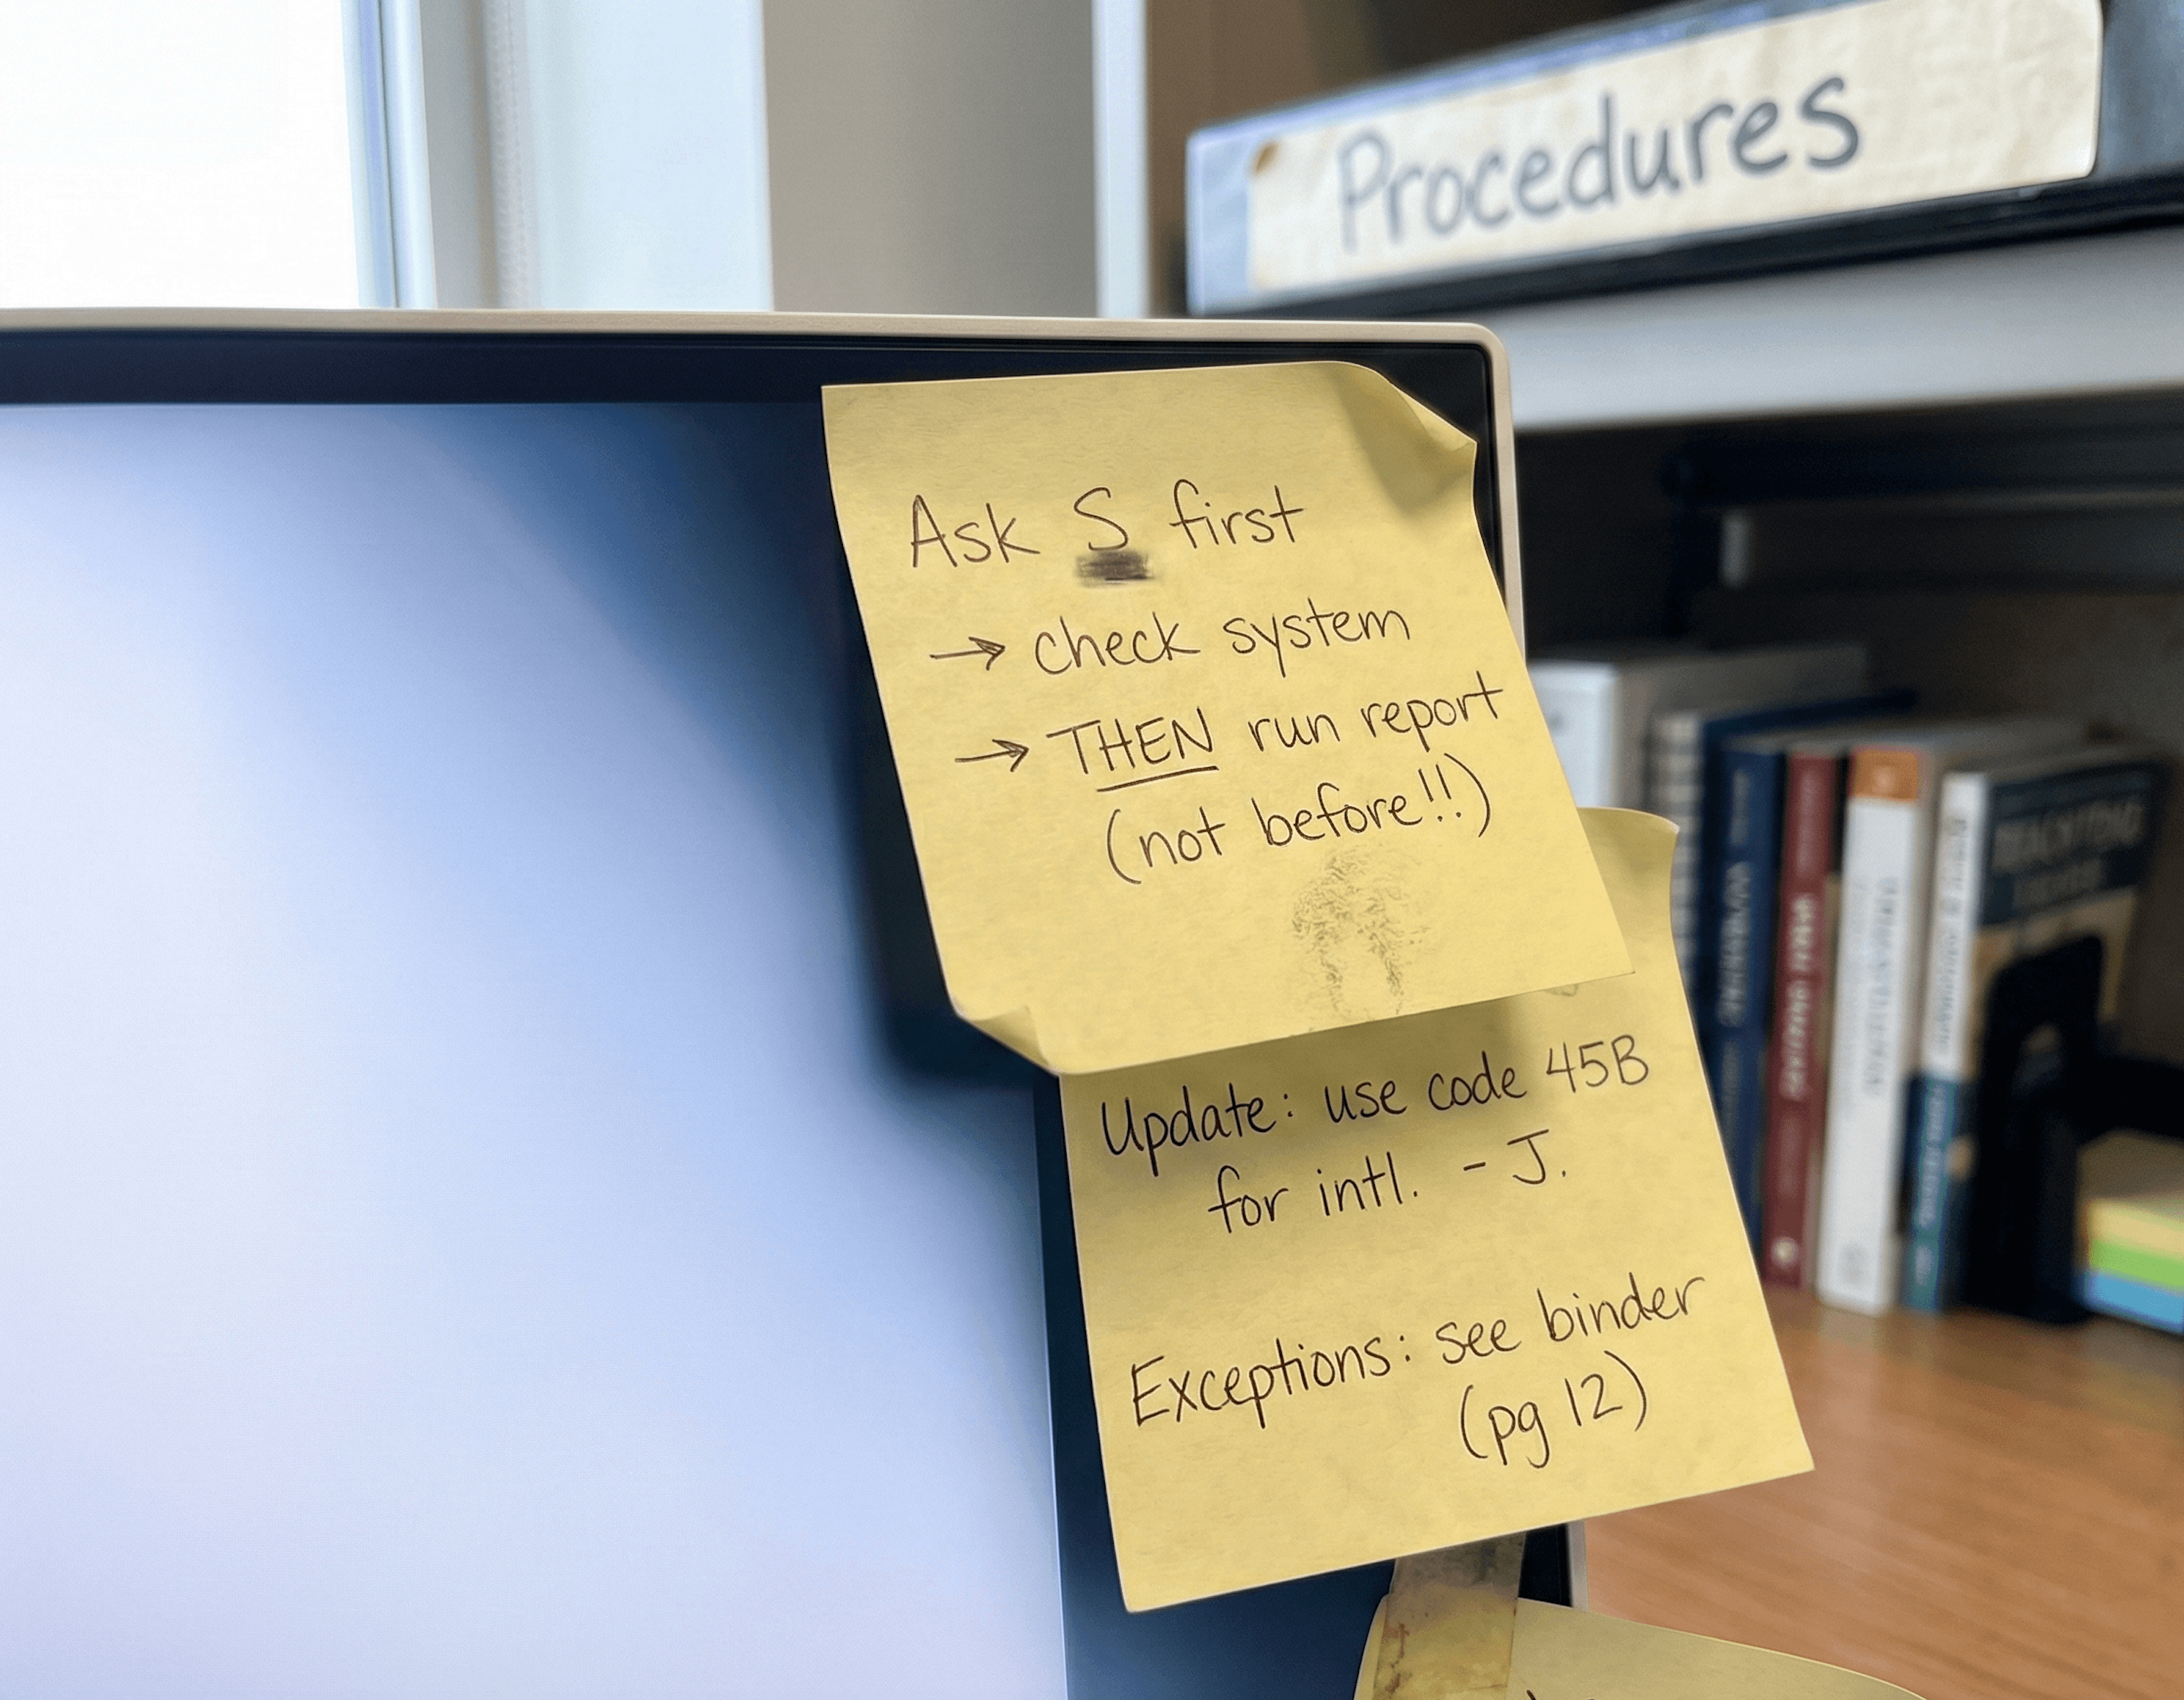 Procedures
Ask S first
→ check system
→ THEN run report
(not before!!)
Update: use code 45B
for intl. - J.
Exceptions: see binder
(pg 12)